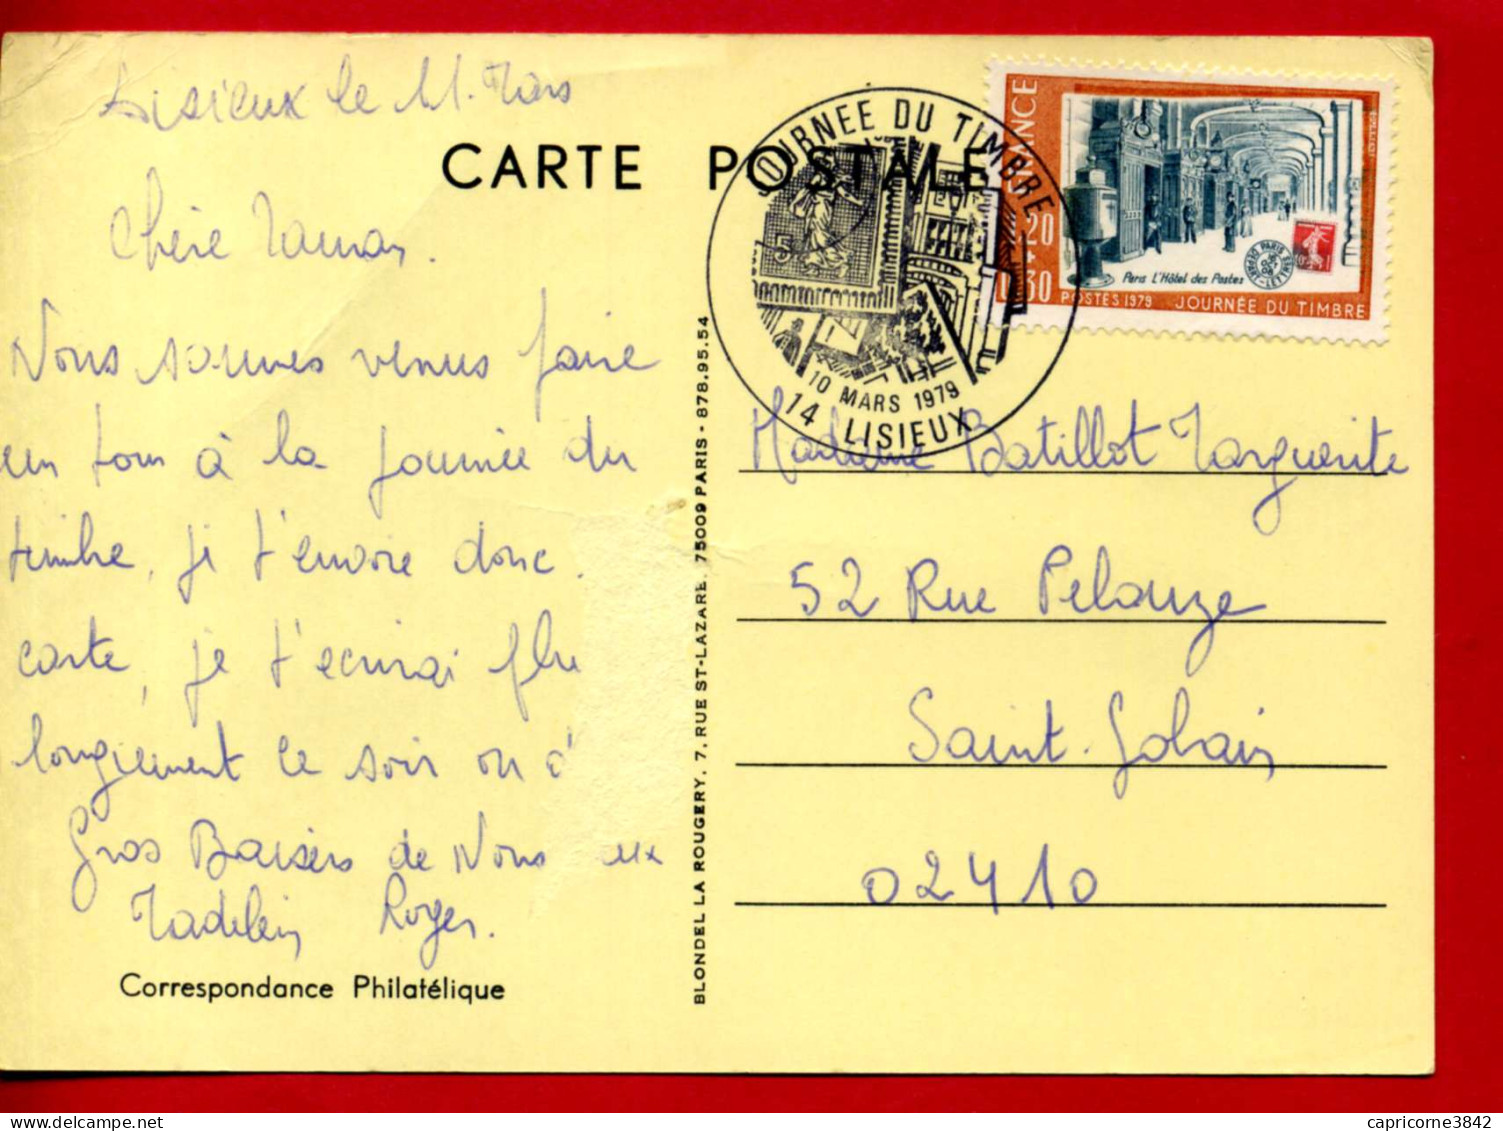 Lisieux le 11. Mars
CARTE POSTALE
Chère Maman.
Nous sommes venus faire
un tour à la journée du
timbre, je t'envoie donc
carte, je t'ecrirai plu
longuement ce soir ou
Gros Baisers de Nous eux
Madelein Roger.
Correspondance Philatélique
BLONDEL LA ROUGERY, 7, RUE ST-LAZARE, 75009 PARIS - 878.95.54
JOURNEE DU TIMBRE
5
10 MARS 1979
14 LISIEUX
FRANCE
1,20
+
0,30
Paris L'Hôtel des Postes
POSTES 1979 JOURNÉE DU TIMBRE
Madame Batillot Marguerite
52 Rue Pelouze
Saint-Gobain
02410
capricorne3842